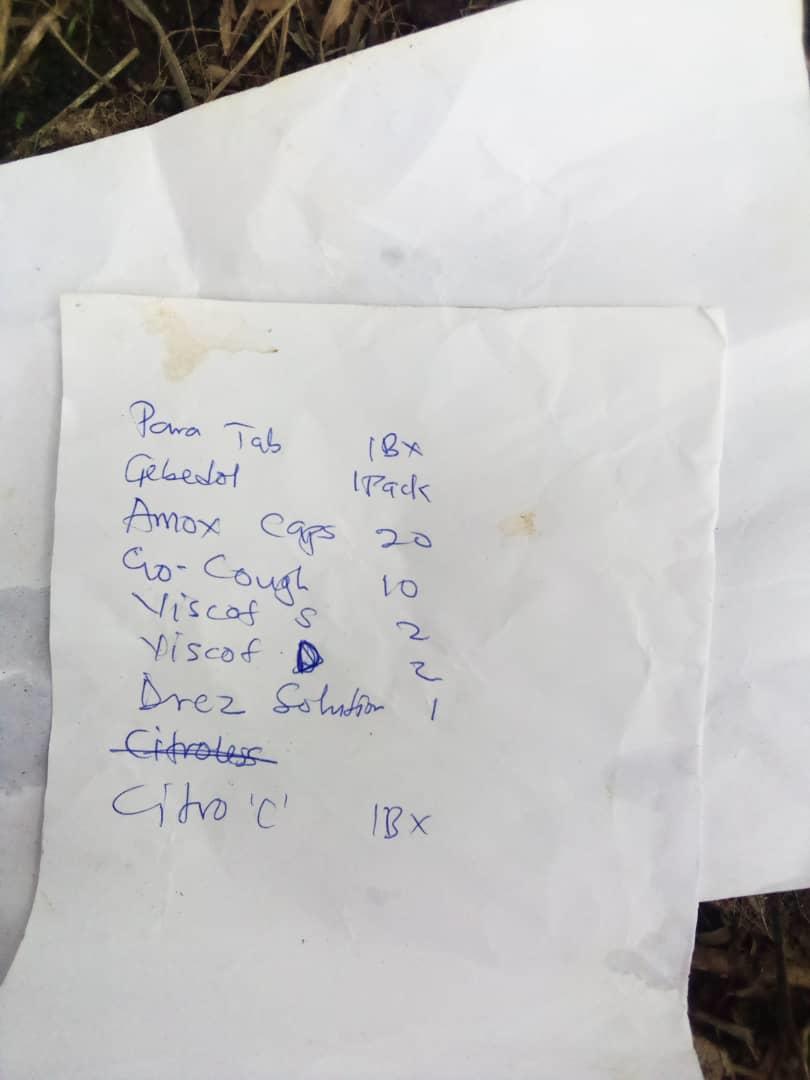 Para Tab 1Bx
Gebedol 1Pack
Amox Caps 20
Go-Cough 10
Viscof S 2
Viscof D 2
Drez Solution 1
Citroless
Citro 'C' 1Bx